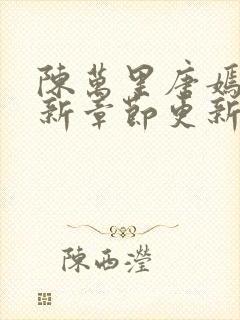 陳萬里唐嫣
新章節更新
陳西瀅